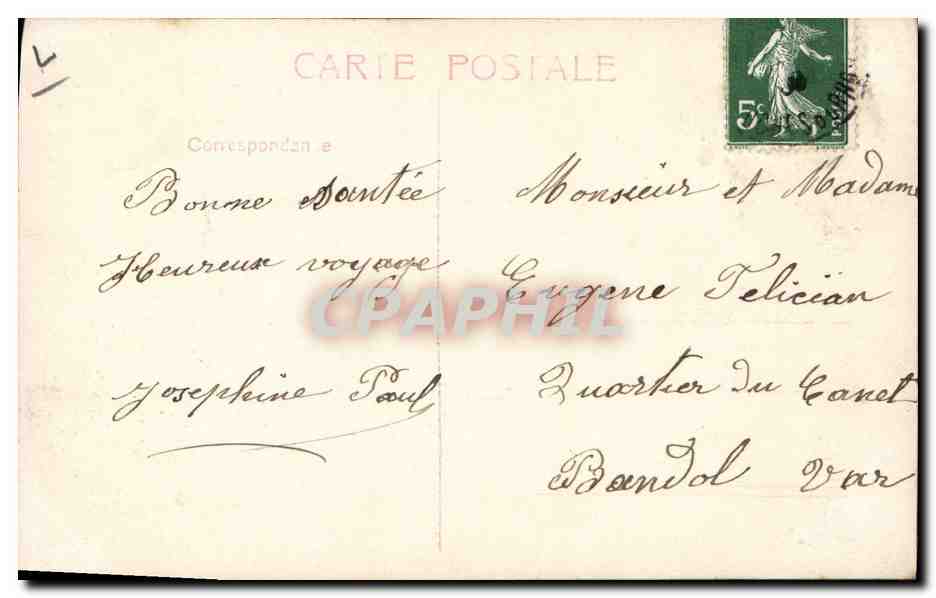 CARTE POSTALE
5c
Correspondan e
Bonne santée
Heureux voyage
Josephine Paul
Monsieur et Madame
Eugene Felician
Quartier du Canet
Bandol Var
CPAPHIL